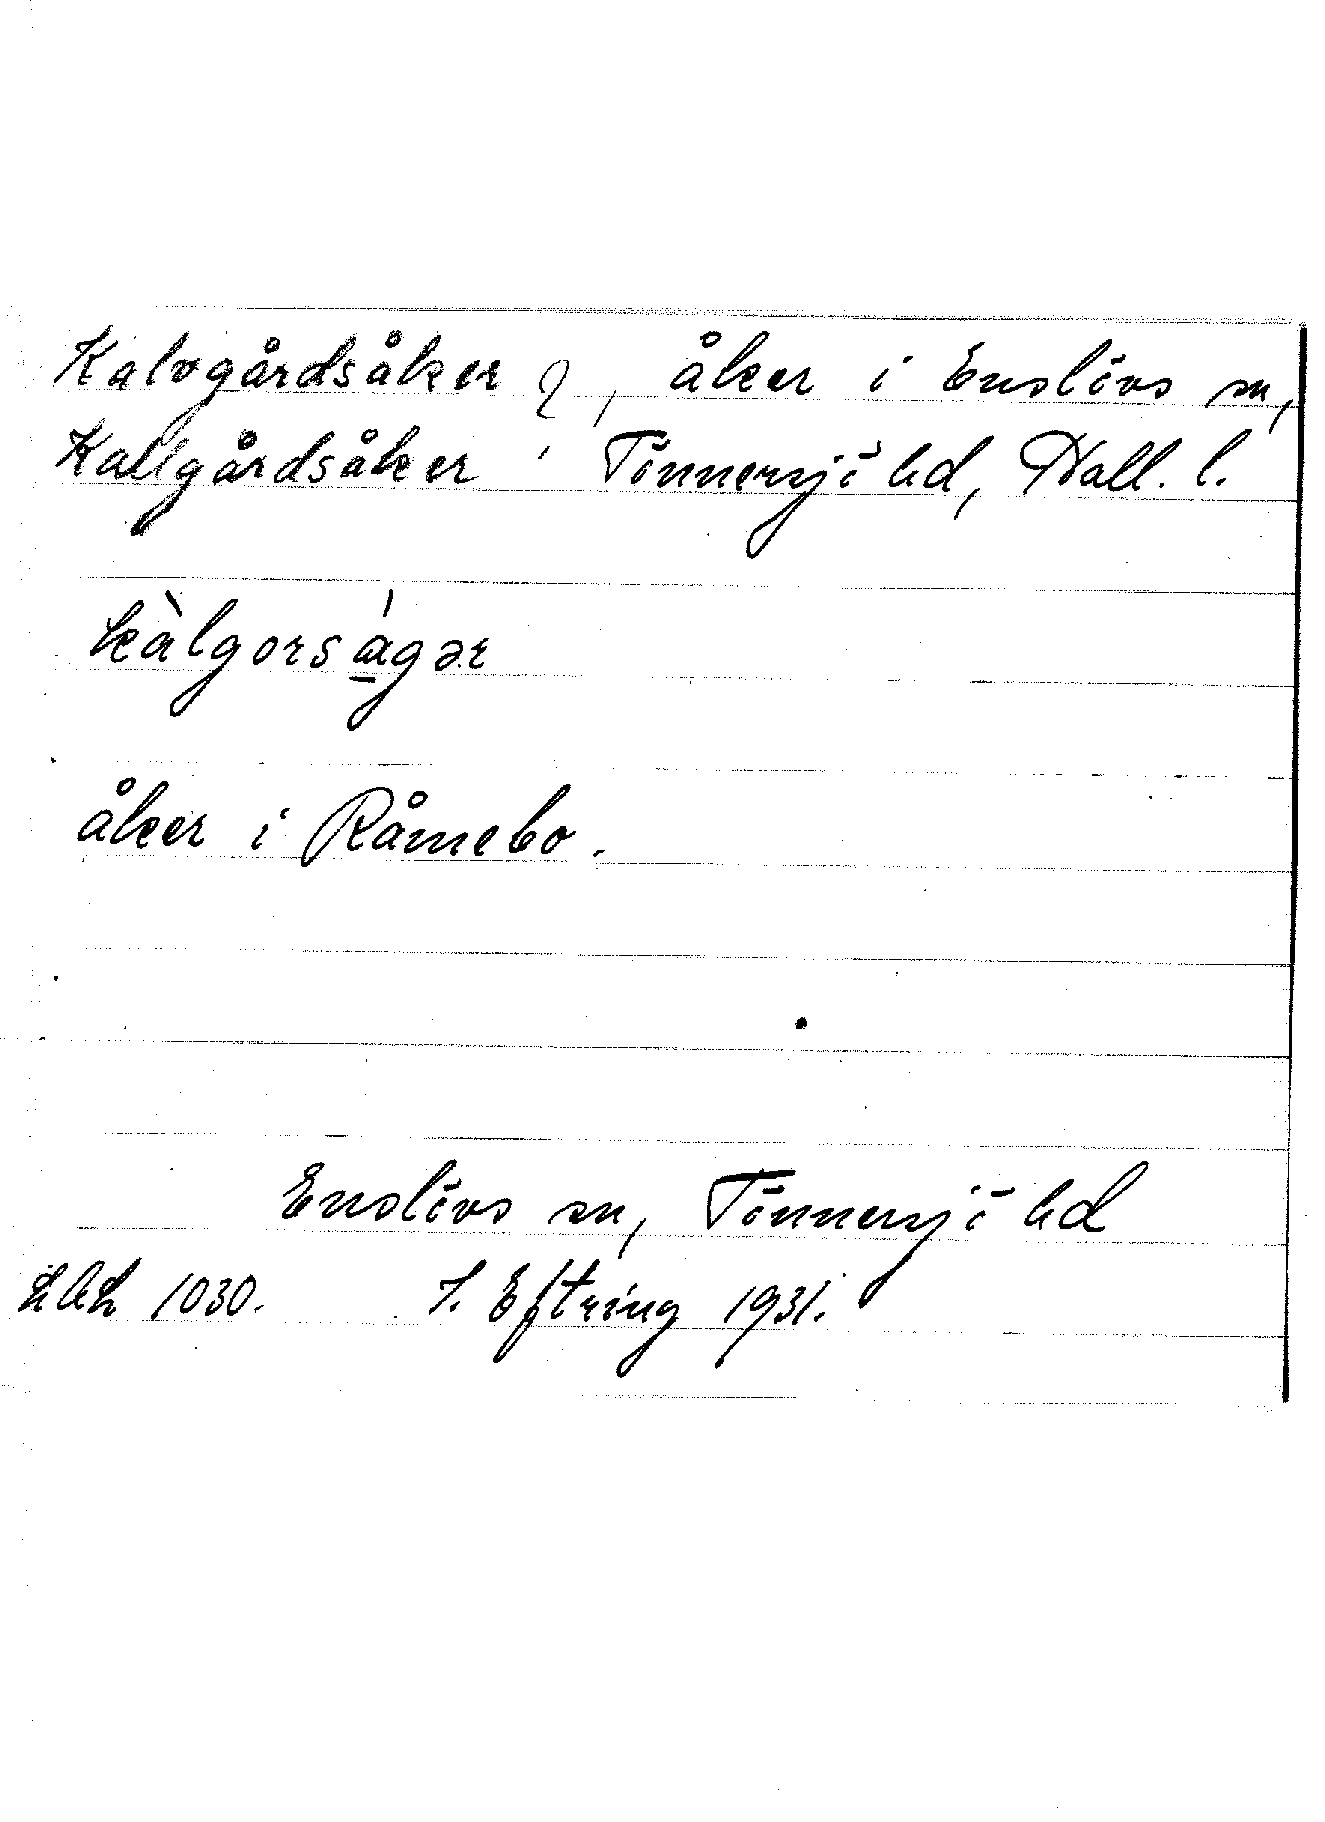 Kalvgårdsåker ?, åker i Enslövs sn,
Kallgårdsåker Tönnersjö hd, Hall. l.
kàlgorságər
åker i Råmebo.
Enslövs sn, Tönnersjö hd
1030. Eftring 1931.